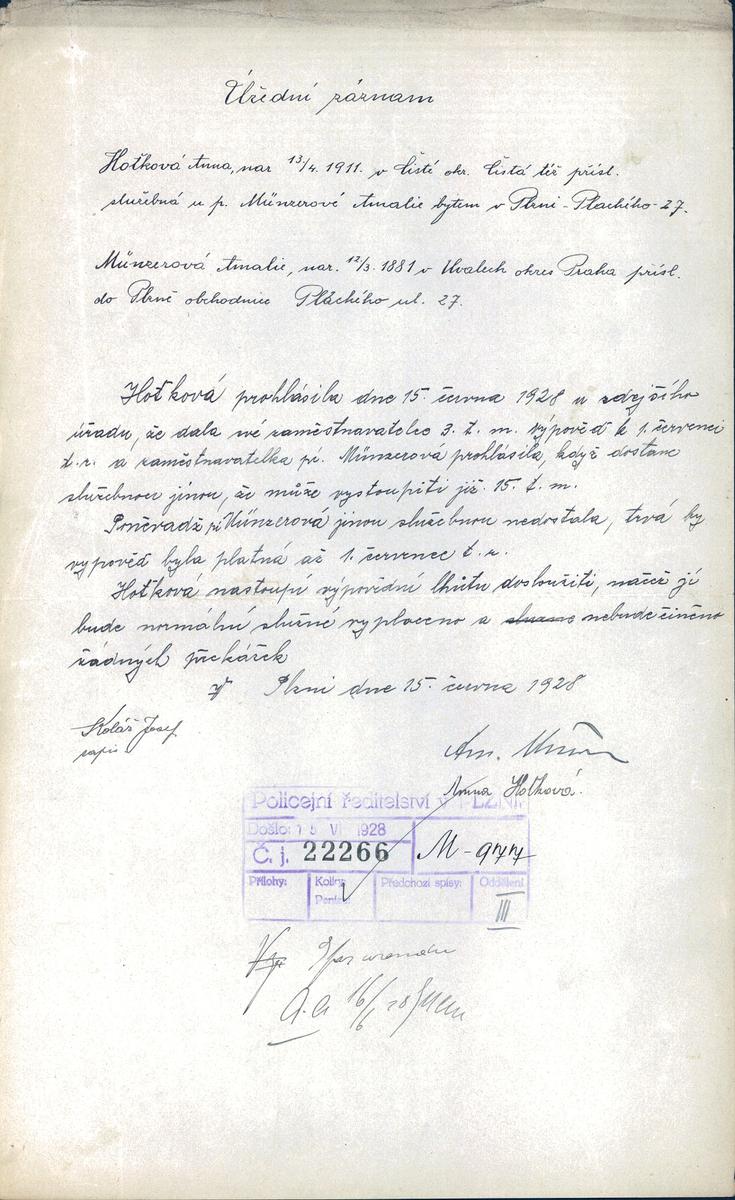 Úřední záznam
Hoťková Anna, nar 13/4. 1911. v Čisté okr. Čistá též přísl.
služebná u p. Münzerové Amalie bytem v Plzni - Plachého - 27.
Münzerová Amalie, nar. 12/3. 1881 v Uvalech okres Praha přísl.
do Plzně obchodnice Pláchého ul. 27.
Hoťková prohlásila dne 15. června 1928 u zdejšího
úřadu, že dala své zaměstnavatelce 3. t. m. výpověď k 1. červenci
t. r. a zaměstnavatelka pí. Münzerová prohlásila, když dostane
služebnou jinou, že může vystoupiti již 15. t. m.
Poněvadž pí Münzerová jinou služebnou nedostala, trvá by
vypověď byla platná až 1. července t. r.
Hoťková nastoupí výpovědní lhůtu dosloužiti, načež jí
bude normální služné vyplaceno a nebude činěno
žádných překážek
V Plzni dne 15. června 1928
Kolář Josef
zapis
Am. Mün
Anna Hoťková.
Policejní ředitelství v PLZNI.
Došlo: 15 VI 1928
Č. j. 22266 M - 977
Přílohy: Kolky: Předchozí spisy: Oddělení
Peníze: III
a.a 16/6 28